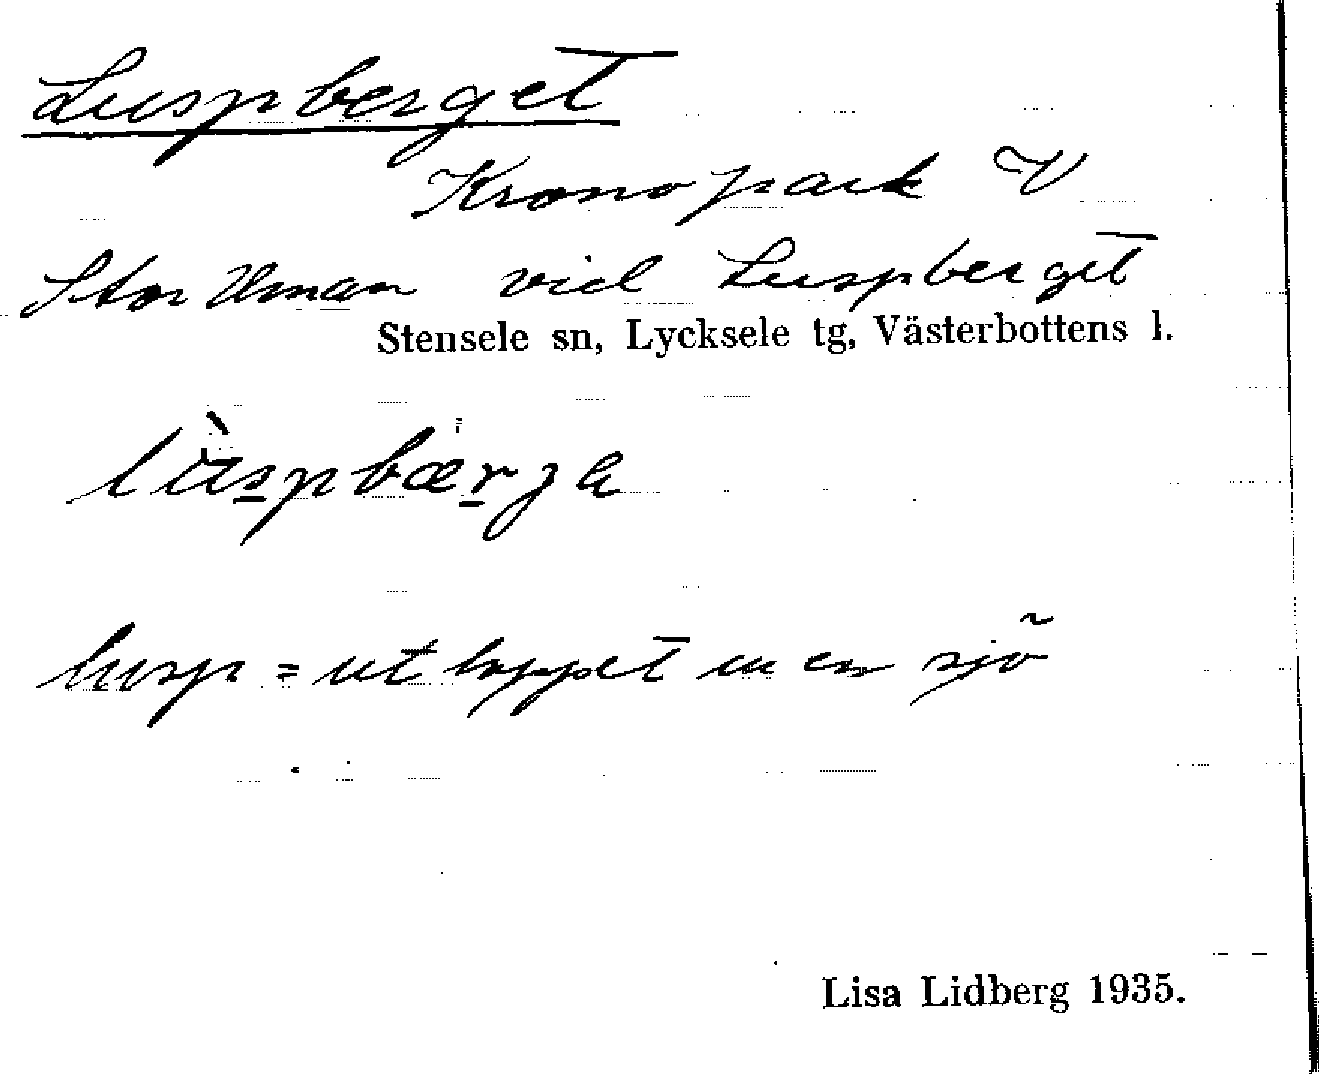 Luspberget
Kronopark V
Stor Uman vid Luspberget
Stensele sn, Lycksele tg, Västerbottens l.
lùspbærja
lusp = utloppet ur en sjö
Lisa Lidberg 1935.